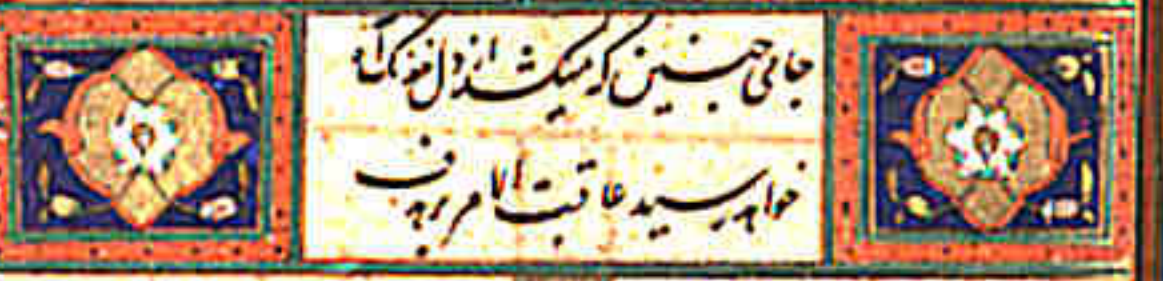 جامی چنین که میکشد از دل خدنگ آه
خواهد رسید عاقبت الامر بر هدف